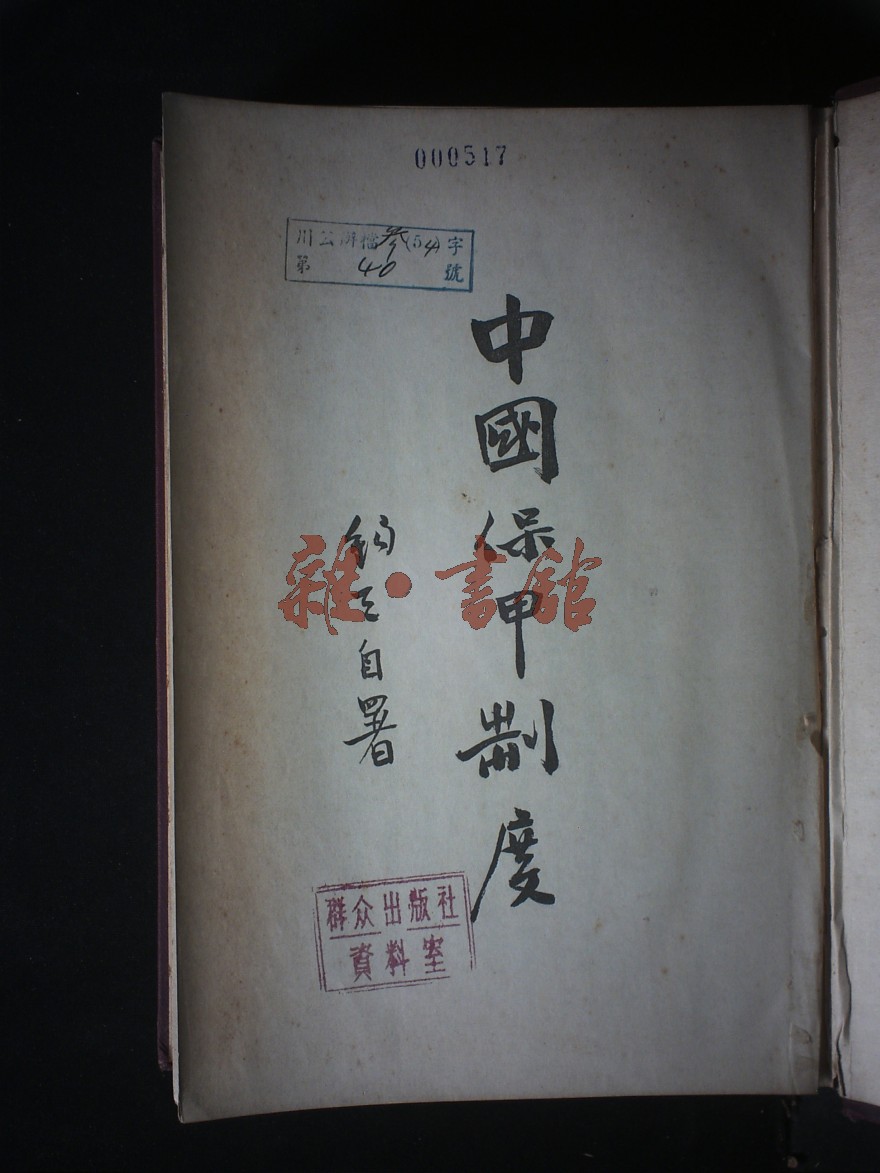 000517
川公辦檔参(54)字
第 40 號
中國保甲制度
鈞天自署
雜·書館
群众出版社
資料室